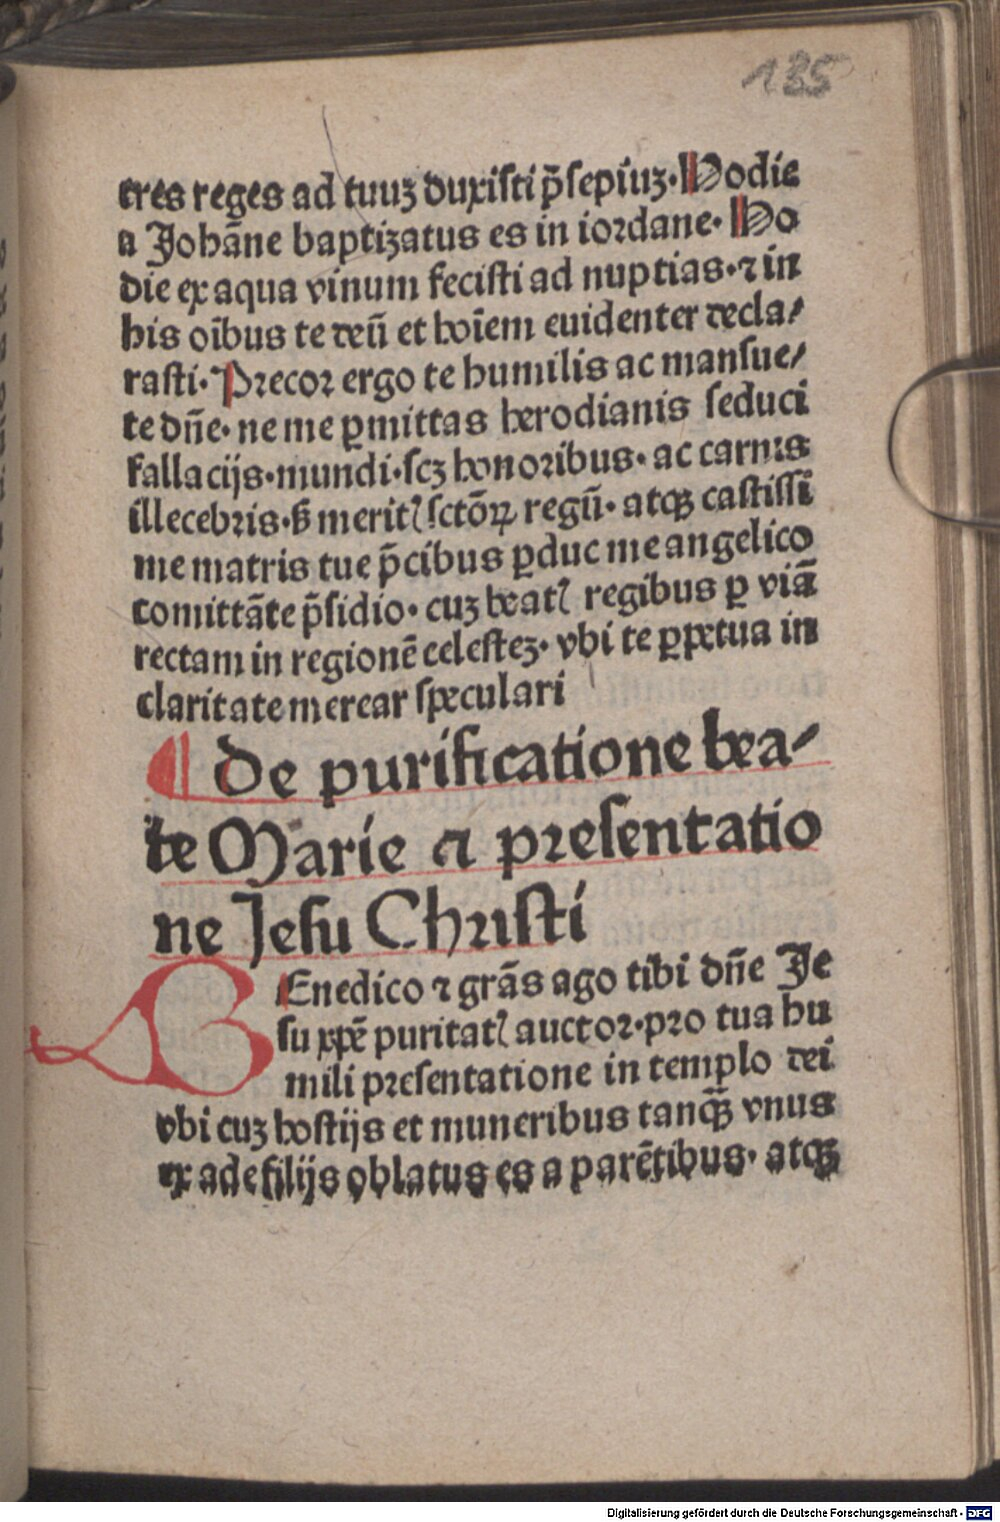 135
tres reges ad tuuʒ duxisti p̄sepiuʒ. Hodie
a Johāne baptizatus es in iordane. Ho
die ex aqua vinum fecisti ad nuptias. ⁊ in
his oībus te deū et hoīem euidenter decla/
rasti. Precor ergo te humilis ac mansue/
te dn̄e. ne me ꝑmittas herodianis seduci
fallacijs. mundi. scʒ honoribus. ac carnis
illecebris. ß meritꝭ sctōꝝ regū. atqꝫ castissi
me matris tue p̄cibus ꝑduc me angelico
comittāte p̄sidio. cuʒ beatꝭ regibus ꝑ viā
rectam in regionē celesteʒ. vbi te ꝑpetua in
claritate merear speculari
¶ De purificatione bea/
te Marie ⁊ presentatio
ne Jesu Christi
BEnedico ⁊ grās ago tibi dn̄e Je
su xp̄e puritatꝭ auctor. pro tua hu
mili presentatione in templo dei
vbi cuʒ hostijs et muneribus tanqꝫ̄ vnus
ex ade filijs oblatus es a parētibus. atqꝫ
Digitalisierung gefördert durch die Deutsche Forschungsgemeinschaft - DFG